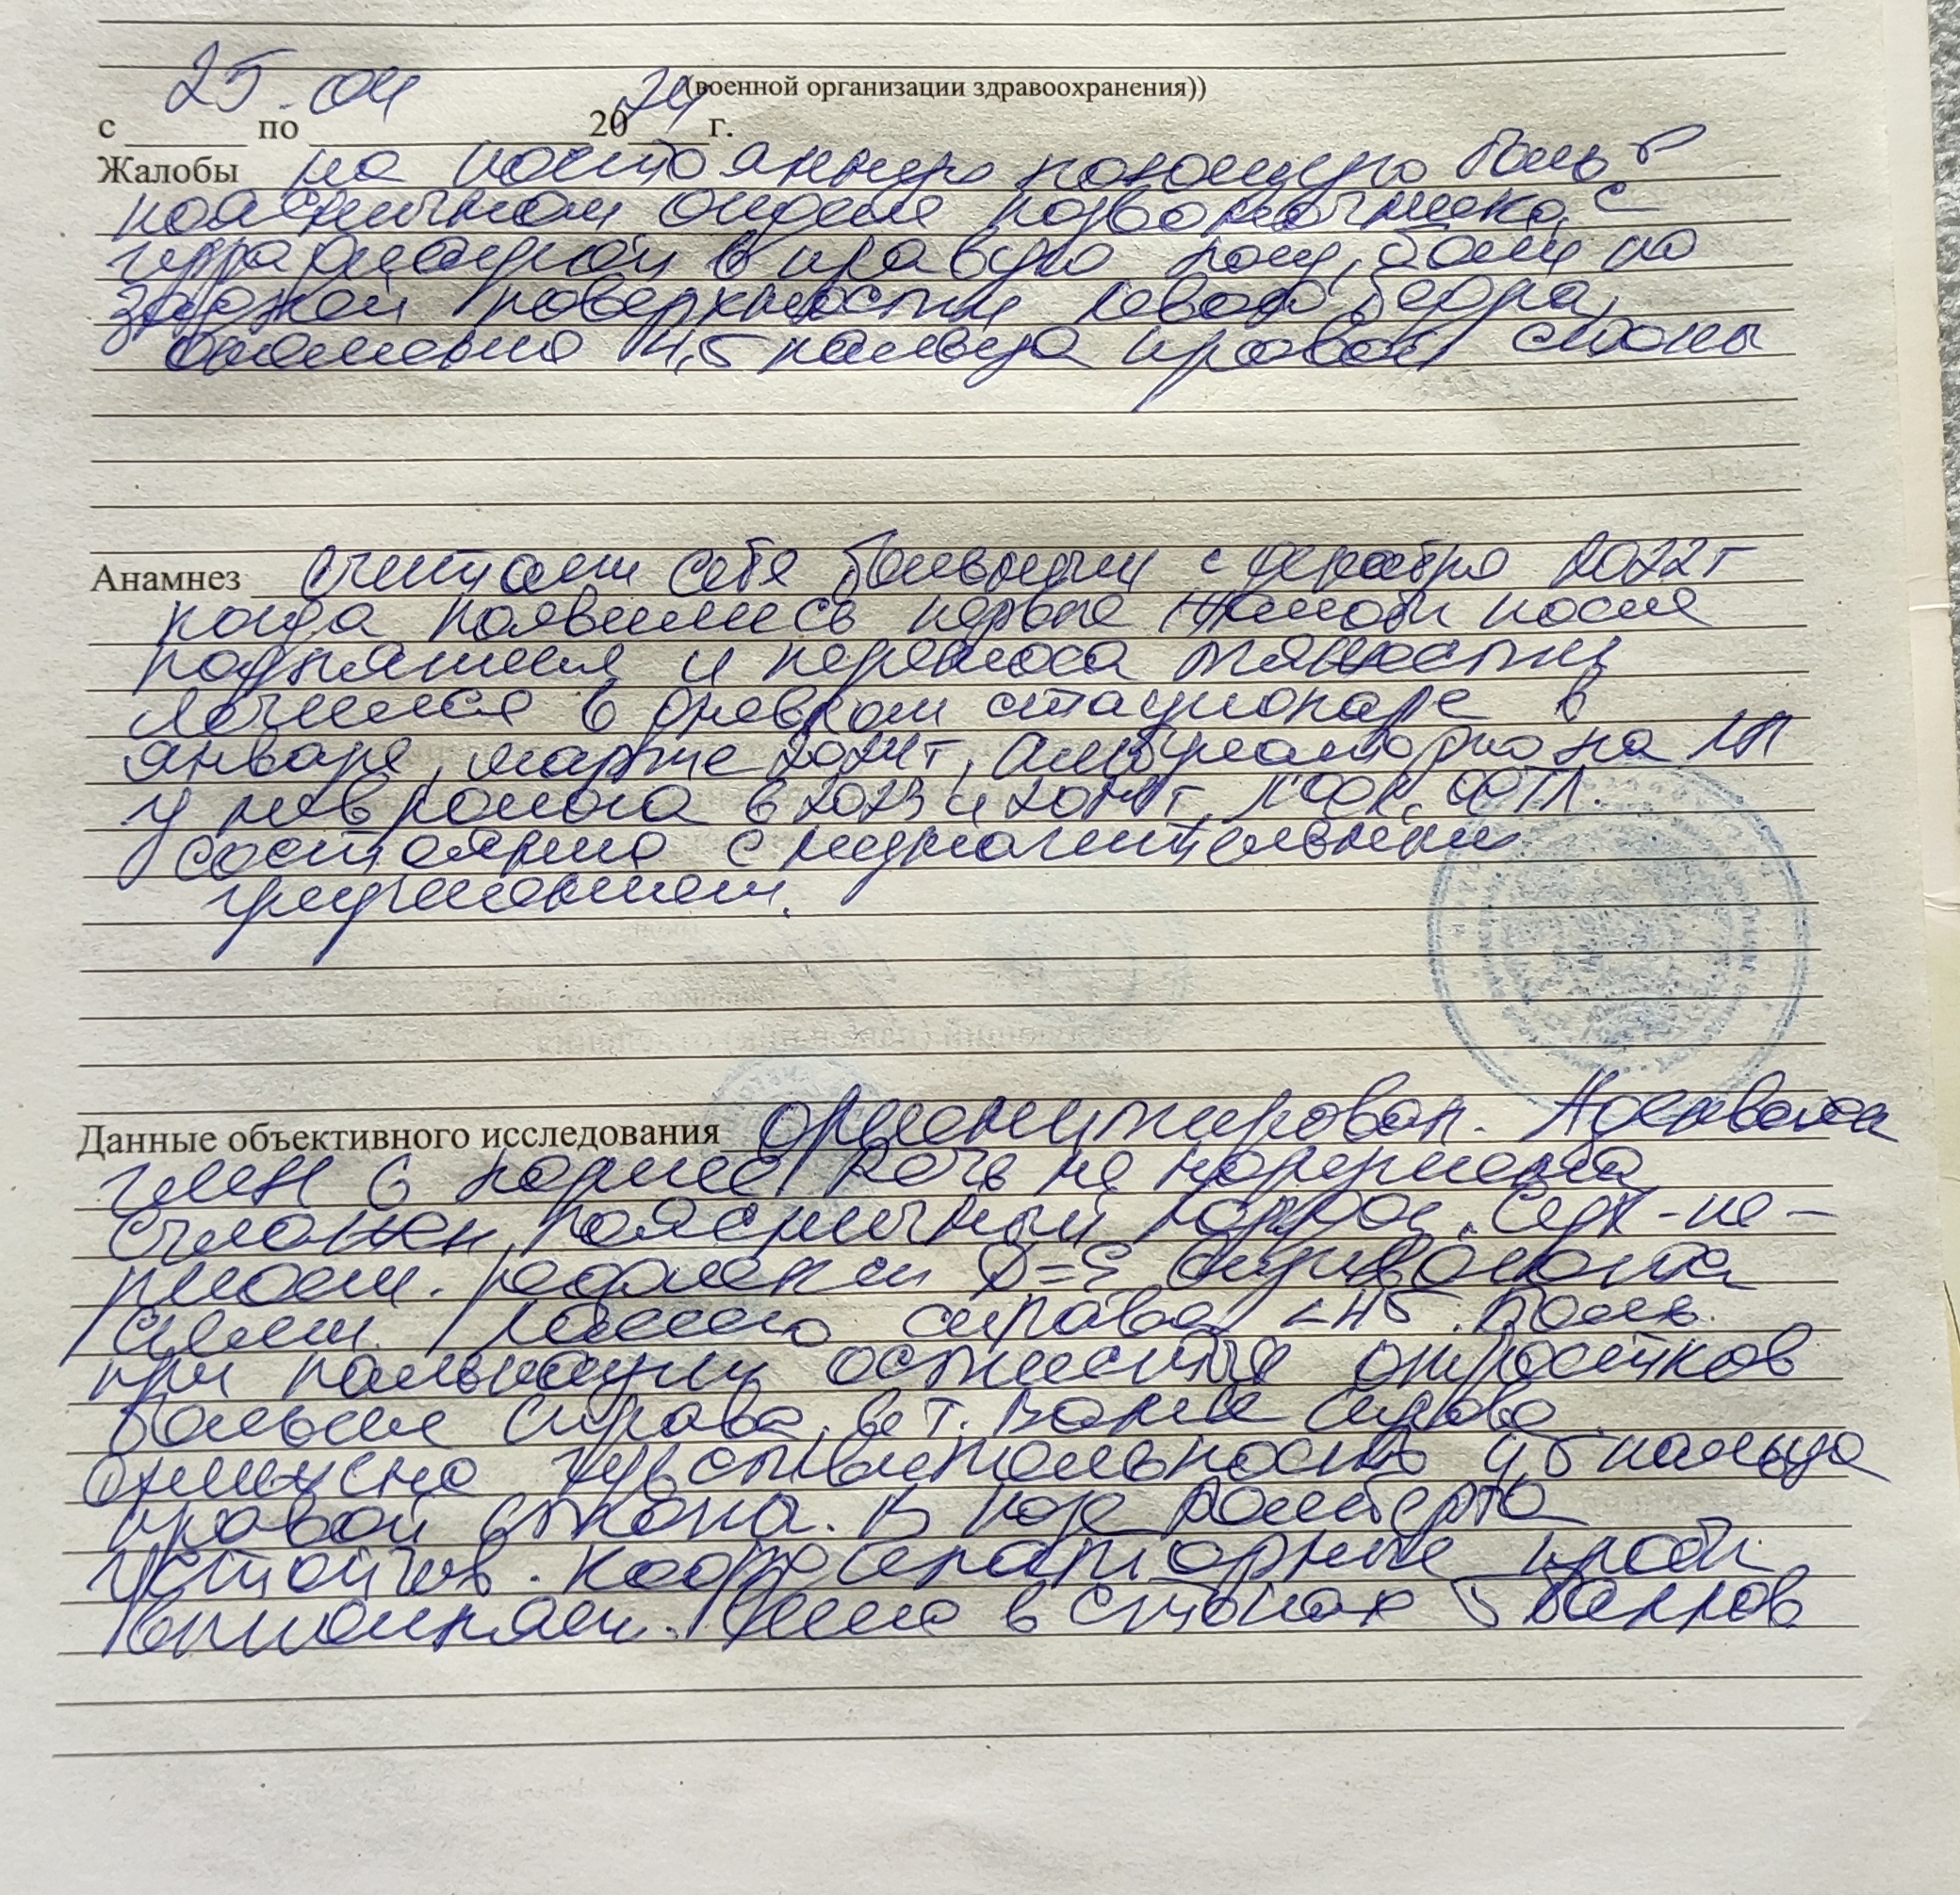 (военной организации здравоохранения))
25.04
с по 2024 г.
Жалобы на постоянную ноющую боль в
поясничном отделе позвоночника, с
иррадиацией в правую ногу, боли по
задней поверхности левого бедра,
онемение 4,5 пальца правой стопы
Анамнез считает себя больным с декабря 2022 г
когда появились первые жалобы после
поднятия и переноса тяжести
лечился в дневном стационаре в
январе, марте 2024 г, амбулаторно на ЛП
у невролога в 2023 и 2024 г, ЛФК, ФТЛ.
состояние с незначительным
улучшением.
Данные объективного исследования ориентирован. Адекватен
ЧМН в норме. Речь не нарушена
сглажен поясничный лордоз. Сух-не-
риост. рефлексы D=S
симп. Ласего справа <45. Боль
при пальпации остистых отростков
больше справа, в т. Валле справа.
снижена чувствительность 4,5 пальца
правой стопы. В позе Ромберга
устойчив. Координаторные пробы
выполняет. Сила в стопах 5 баллов